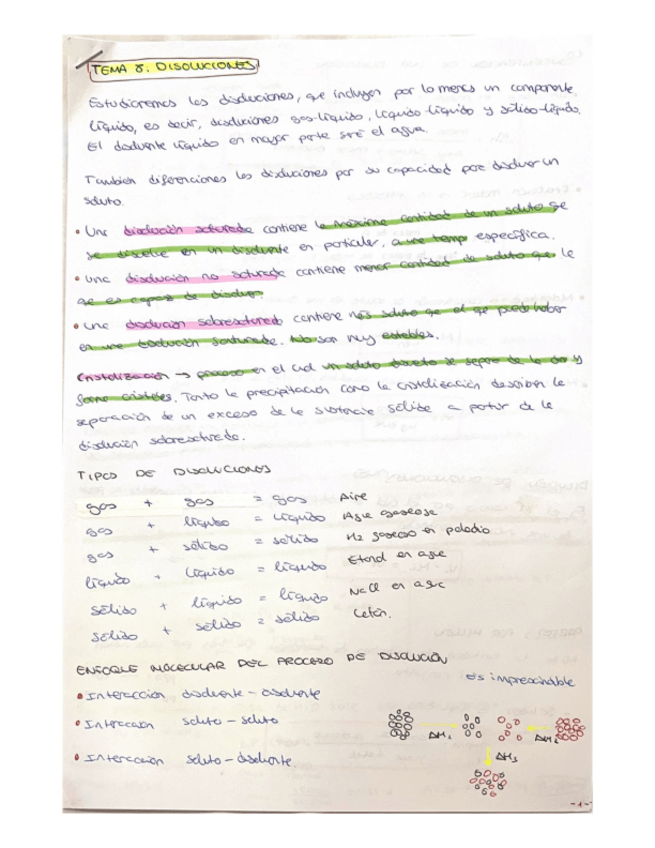 TEMA 8. DISOLUCIONES
Estudiaremos las disoluciones, que incluyen por lo menos un componente
líquido, es decir, disoluciones gas-líquido, líquido-líquido y sólido-líquido.
El disolvente líquido en mayor parte será el agua.
También diferenciamos las disoluciones por su capacidad para disolver un
soluto.
• Una disolución saturada contiene la máxima cantidad de un soluto que
se disuelve en un disolvente en particular, a una temp específica.
• Una disolución no saturada contiene menor cantidad de soluto que la
que es capaz de disolver.
• Una disolución sobresaturada contiene más soluto que el que puede haber
en una disolución saturada. No son muy estables.
Cristalización → proceso en el cual un soluto disuelto se separa de la dis y
forma cristales. Tanto la precipitación como la cristalización describen la
separación de un exceso de la sustancia sólida a partir de la
disolución sobresaturada.
TIPOS DE DISOLUCIONES
gas + gas = gas Aire
gas + líquido = líquido Agua gaseosa
gas + sólido = sólido H2 gaseoso en paladio
líquido + líquido = líquido Etanol en agua
sólido + líquido = líquido NaCl en agua
sólido + sólido = sólido Latón.
ENFOQUE MOLECULAR DEL PROCESO DE DISOLUCIÓN
es imprescindible
• Interacción disolvente - disolvente
• Interacción soluto - soluto
ΔH1 ΔH2
• Interacción soluto - disolvente
ΔH3
-1-